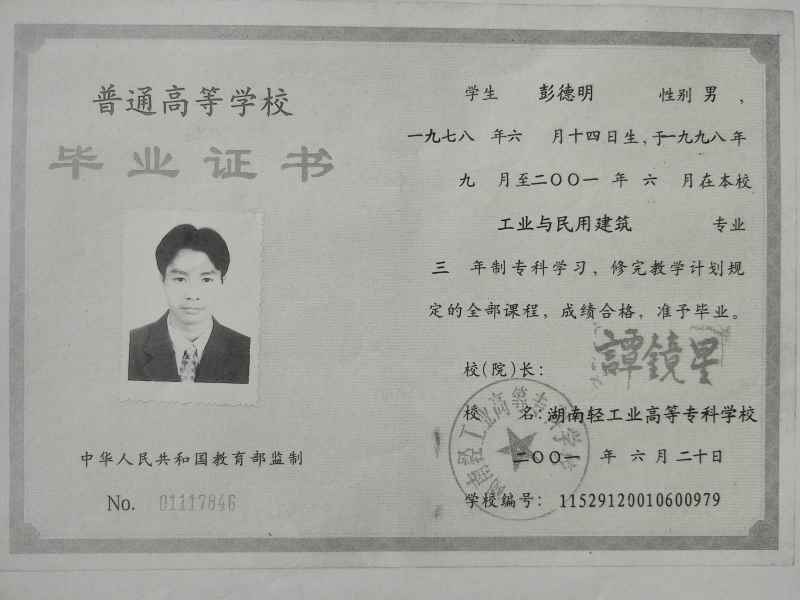 普通高等学校
毕业证书
中华人民共和国教育部监制
No. 01117846
学生 彭德明 性别 男 ，
一九七八 年六 月十四日生，于一九九八年
九 月至二〇〇一 年 六 月在本校
工业与民用建筑 专业
三 年制专科学习，修完教学计划规
定的全部课程，成绩合格，准予毕业。
校(院)长：
譚鏡星
校 名：湖南轻工业高等专科学校
湖南轻工业高等专科学校
二〇〇一 年 六 月 二十日
学校编号： 11529120010600979